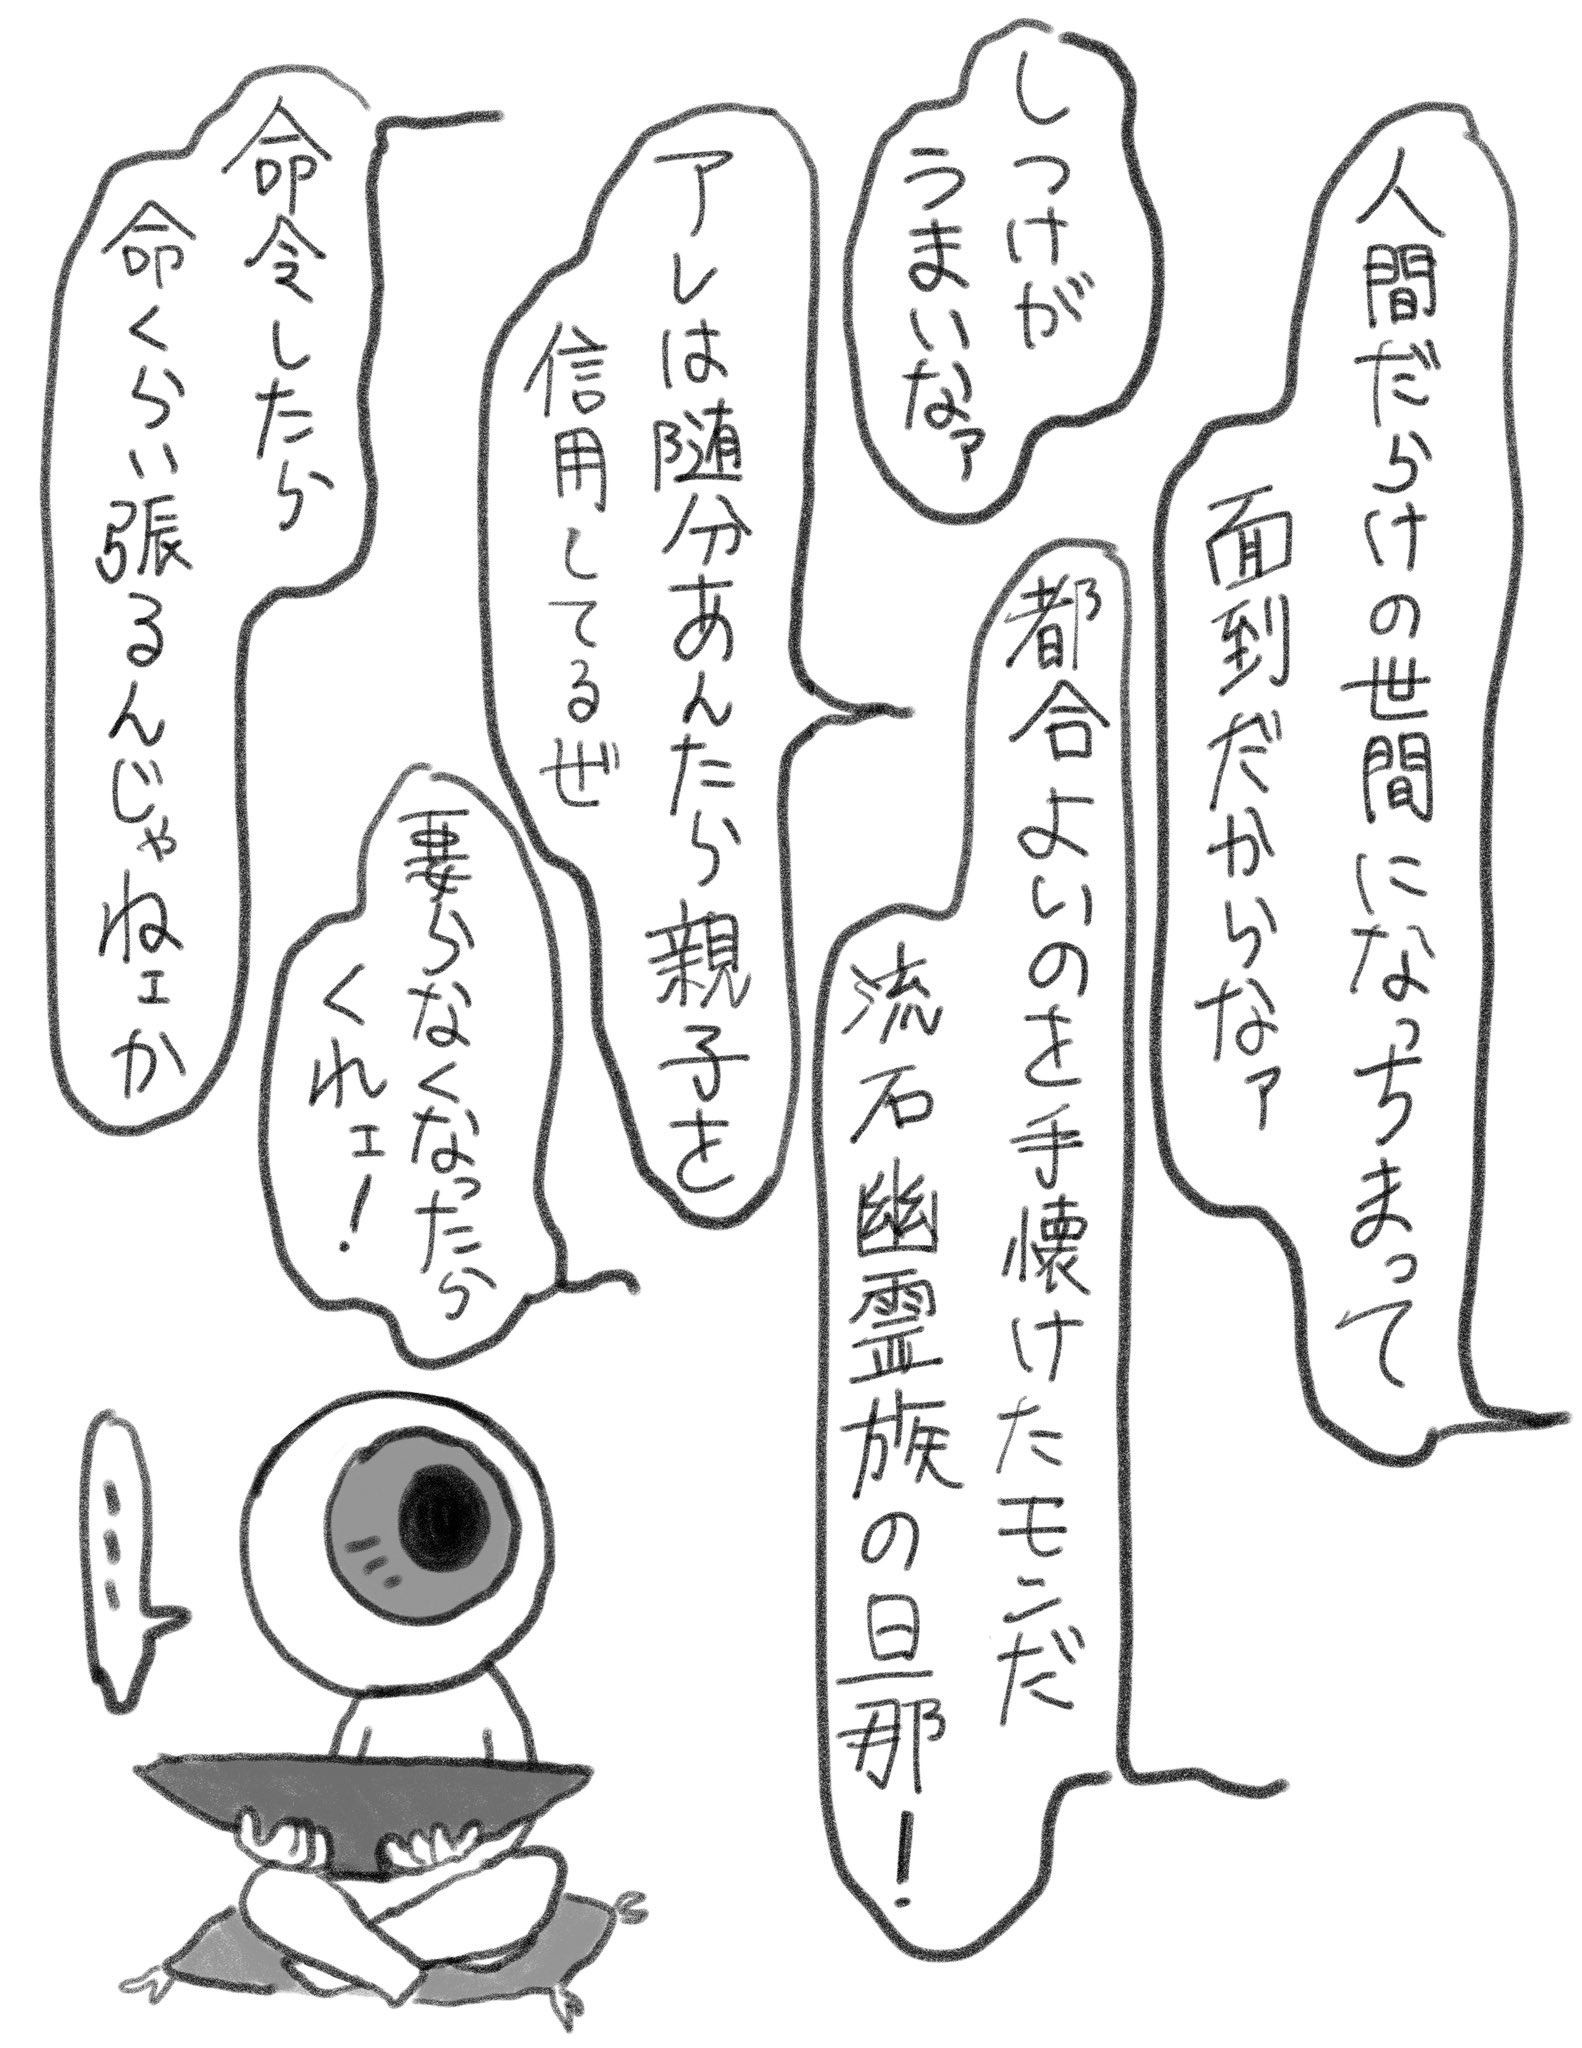 人間だらけの世間になっちまって
面到だからなァ
しつけが
うまいなァ
都合よいのを手懐けたモンだ
流石幽霊族の旦那!
アレは随分あんたら親子を
信用してるぜ
妻らなくなったら
くれェ!
命令したら
命くらい張るんじゃねェか
---